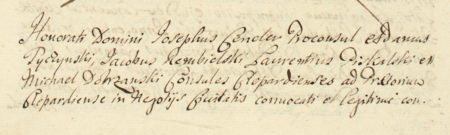 Honorati Domini Josephus Cencler Proconsul
Tyczynski, Jacobus Laurentius et
Michael Dobrzanski Consules Clepardienses ad Prætorium
Clepardiense in Negotijs Civitatis convocati et legitime con